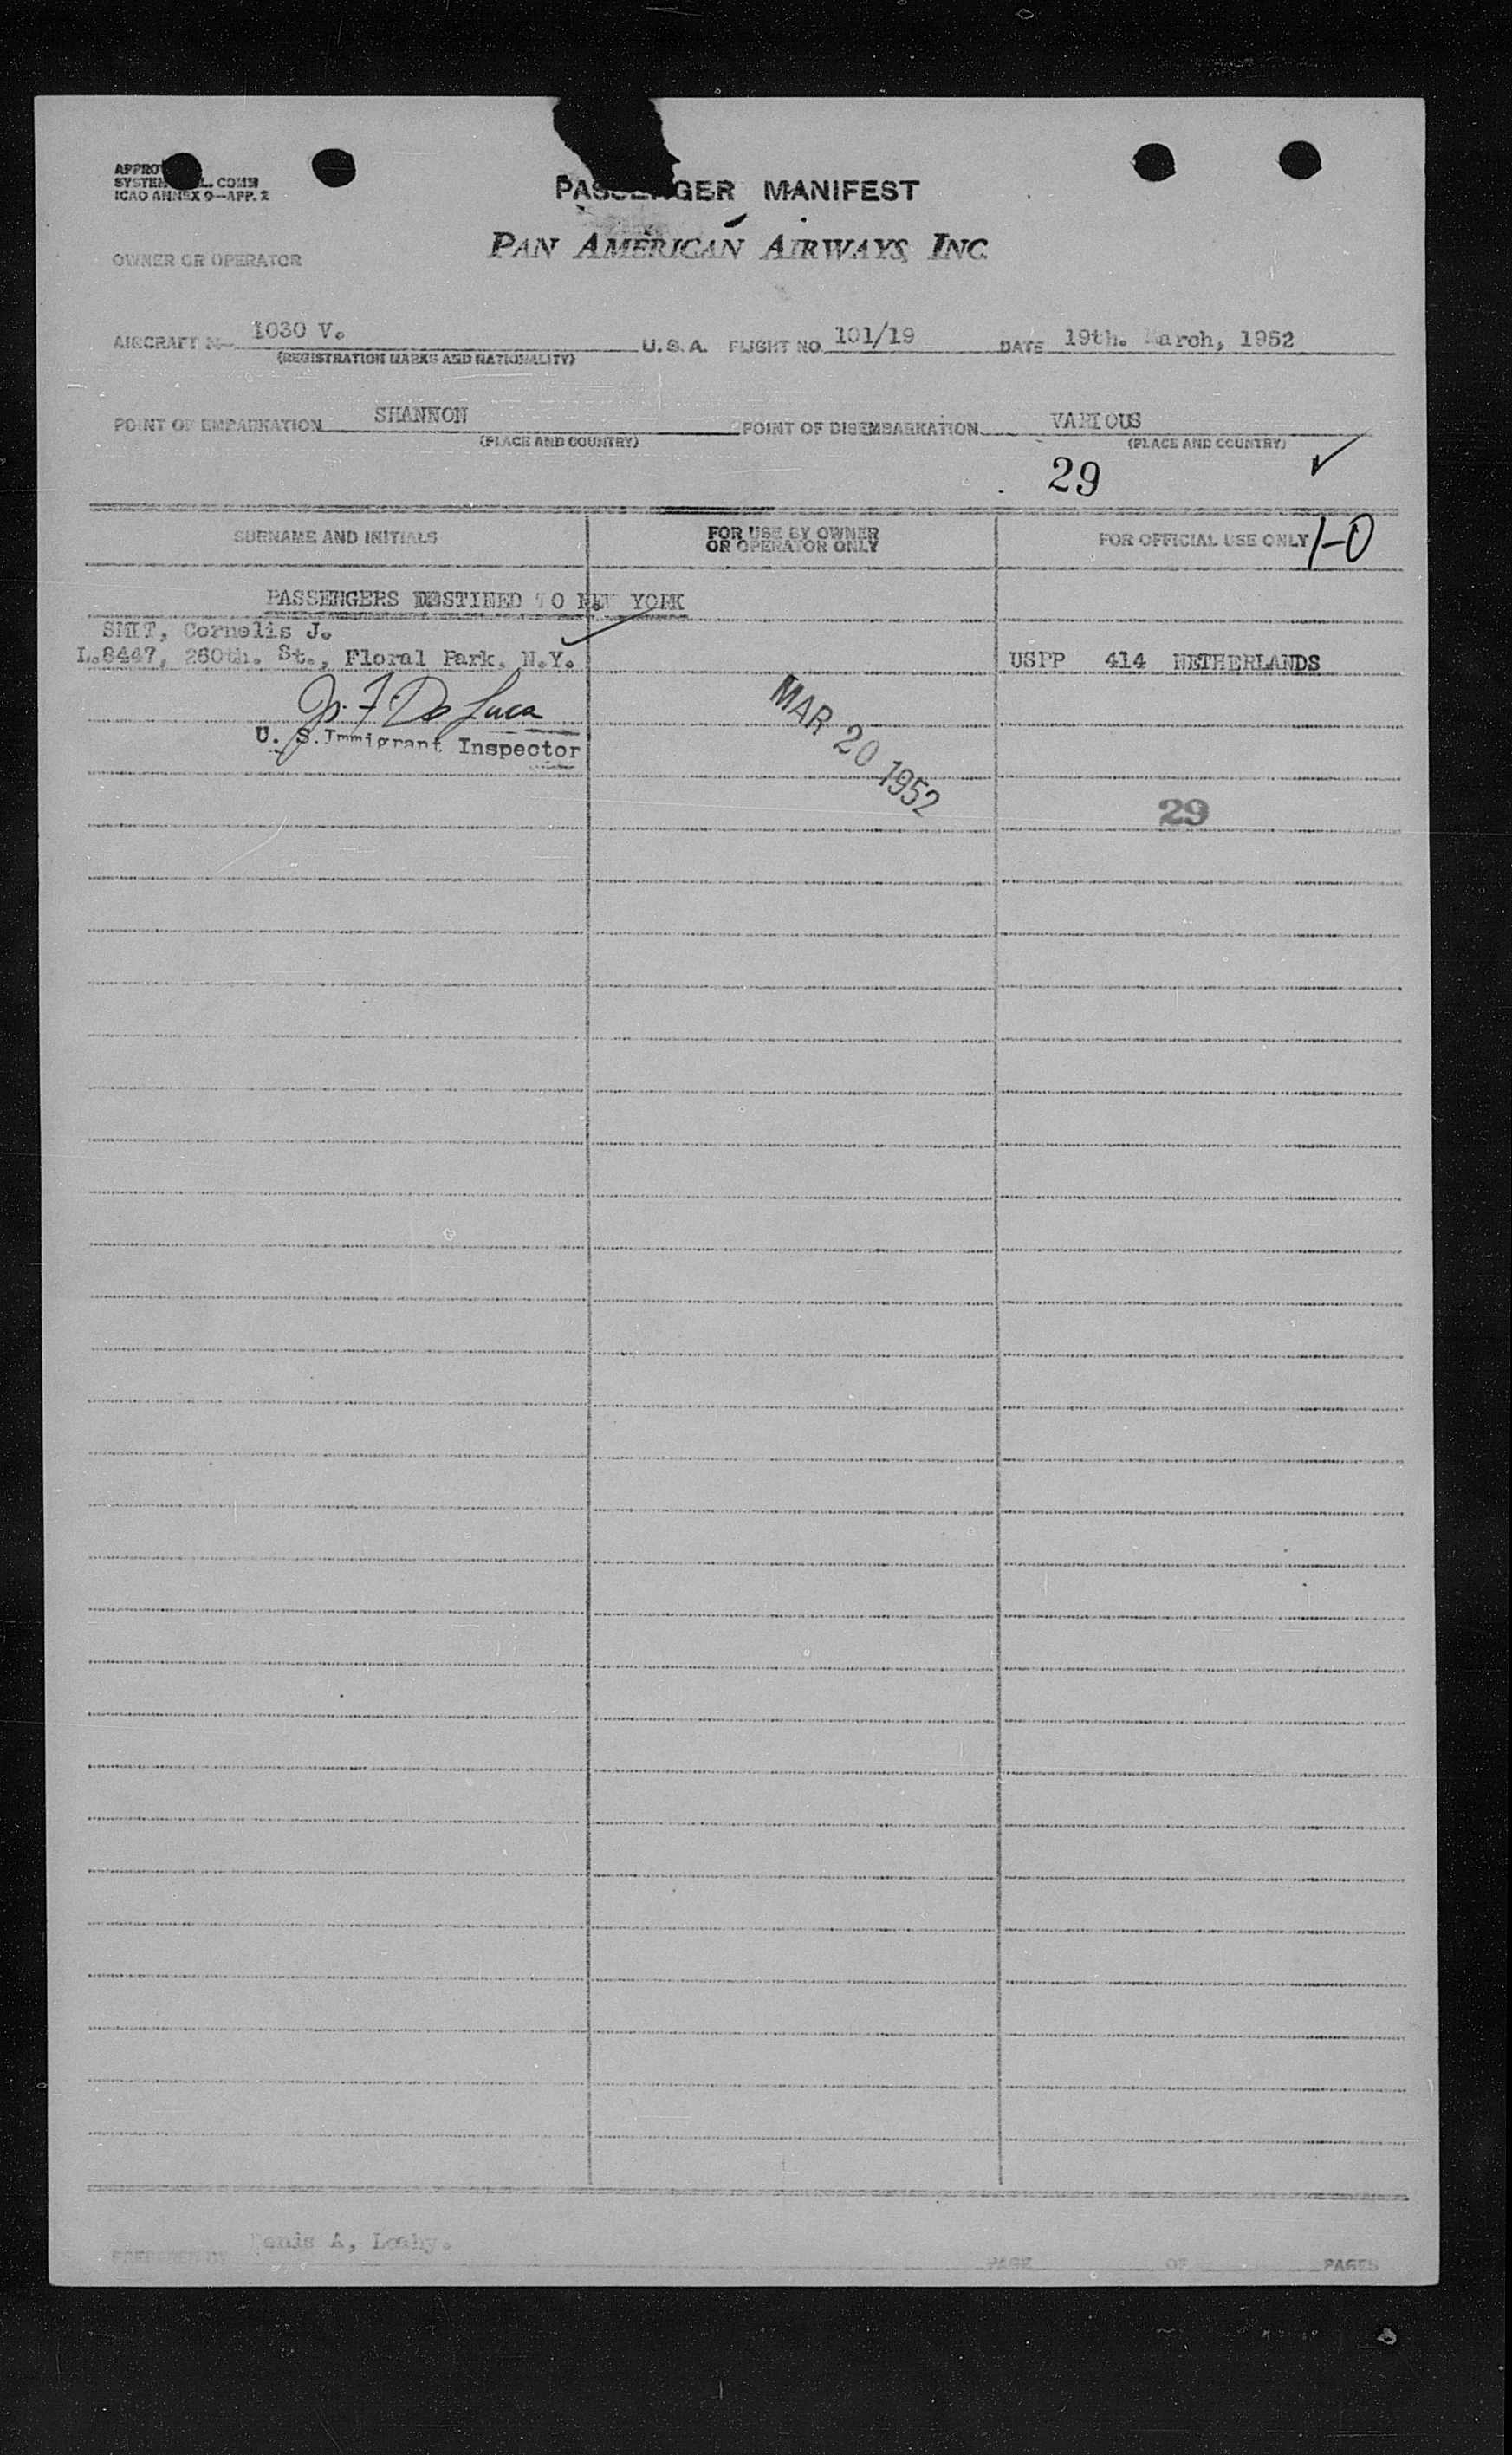 PASSENGER MANIFEST
ICAO ANNEX 9—APP. 2
PAN AMERICAN AIRWAYS, INC.
OWNER OR OPERATOR
AIRCRAFT N— 1030 V. U.S.A. FLIGHT NO. 101/19 DATE 19th. March, 1952
(REGISTRATION MARKS AND NATIONALITY)
POINT OF EMBARKATION SHANNON POINT OF DISEMBARKATION VARIOUS
(PLACE AND COUNTRY) (PLACE AND COUNTRY)
29
SURNAME AND INITIALS FOR USE BY OWNER OR OPERATOR ONLY FOR OFFICIAL USE ONLY 1-0
PASSENGERS DESTINED TO NEW YORK
SMIT, Cornelis J.
L.8447, 260th. St., Floral Park, N.Y. USPP 414 NETHERLANDS
De Luca
U. S. Immigrant Inspector
MAR 20 1952
29
PREPARED BY Denis A, Leahy.
PAGE OF PAGES